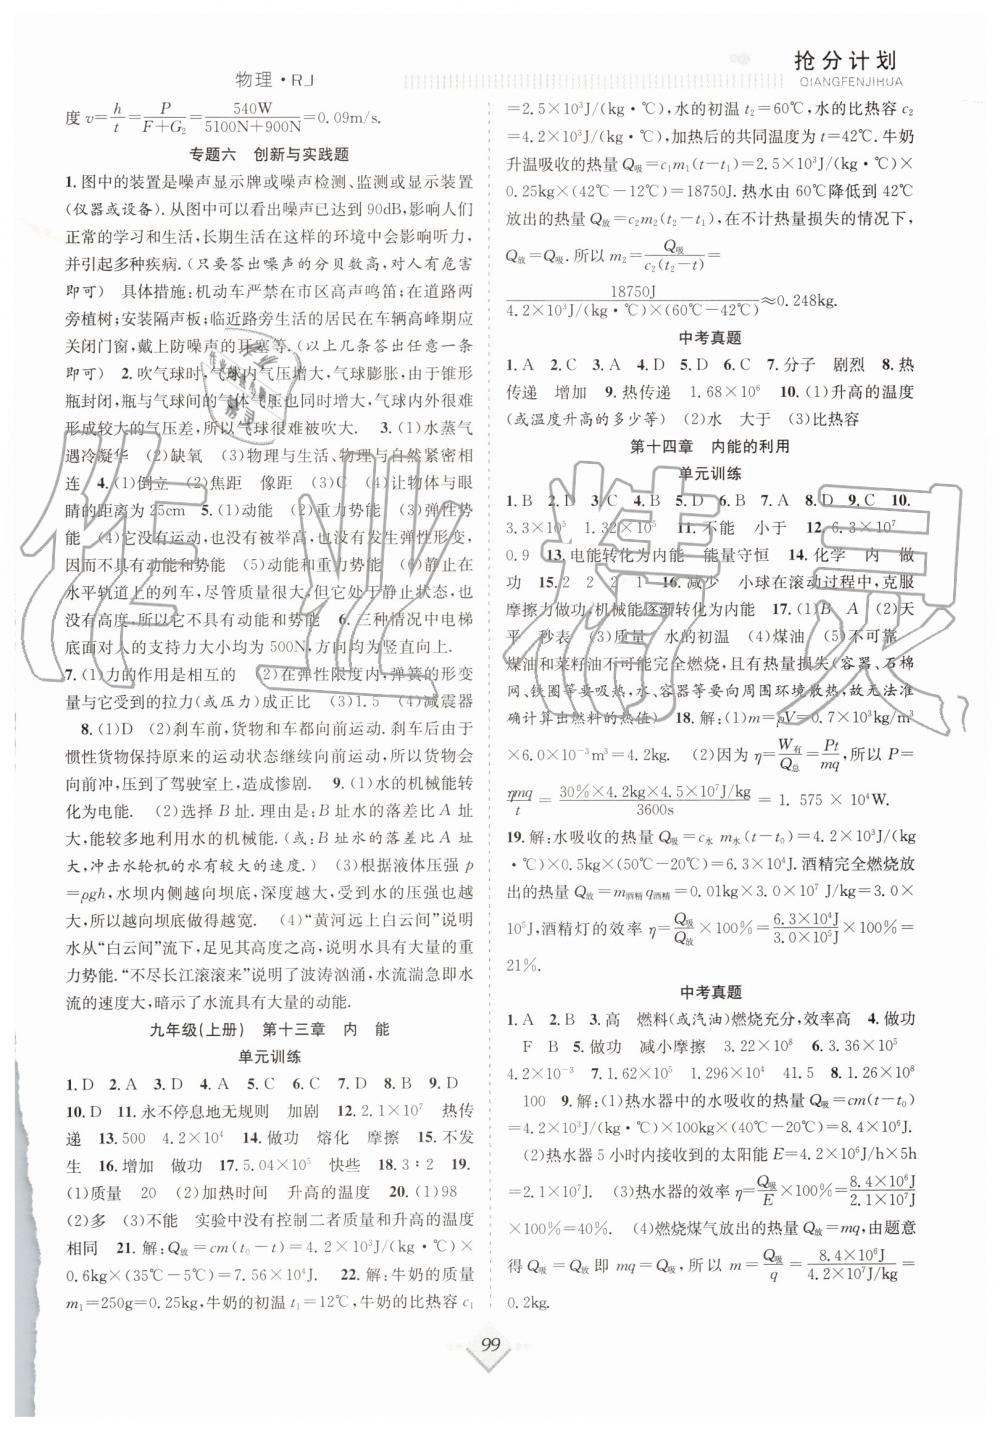 物理·RJ
抢分计划
QIANGFENJIHUA
度 v=h/t=P/(F+G₂)=540W/(5100N+900N)=0.09m/s.
专题六 创新与实践题
1.图中的装置是噪声显示牌或噪声检测、监测或显示装置
(仪器或设备).从图中可以看出噪声已达到 90dB,影响人们
正常的学习和生活,长期生活在这样的环境中影响听力,
并引起多种疾病.(只要答出噪声的分贝数高,对人有危害
即可) 具体措施:机动车严禁在市区高声鸣笛;在道路两
旁植树;安装隔声板;临近路旁生活的居民在车辆高峰期应
关闭门窗,戴上防噪声的耳塞等.(以上几条答出任意一条
即可) 2.吹气球时,气球内气压增大,气球膨胀,由于锥形
瓶封闭,瓶与气球间的气体气压也同时增大,气球很难
形成较大的气压差,所以气球很难被吹大. 3.(1)水蒸气
遇冷凝华 (2)缺氧 (3)物理与生活、物理与自然紧密相
连 4.(1)倒立 (2)焦距 像距 (3)C (4)让物体与眼
睛的距离为25cm 5.(1)动能 (2)重力势能 (3)弹性势
能 (4)它没有运动,也没有被举高,也没有发生弹性形变,
因而不具有动能和势能 (5)静止在
水平轨道上的列车,尽管质量很大,但它处于静止状态,也
没有高度,所以不具有动能和势能 6.三种情况中电梯
底面对人的支持力大小均为500N,方向均为竖直向上.
7.(1)力的作用是相互的 (2)在弹性限度内,弹簧的形变
量与它受到的拉力(或压力)成正比 (3)1.5 (4)减震器
8.(1)D (2)刹车前,货物和车都向前运动.刹车后由于
惯性货物保持原来的运动状态继续向前运动,所以货物会
向前冲,压到了驾驶室上,造成惨剧. 9.(1)水的机械能转
化为电能. (2)选择 B 址.理由是:B 址水的落差比 A 址
大,能较多地利用水的机械能.(或:B 址水的落差比 A 址
大,冲击水轮机的水有较大的速度.) (3)根据液体压强 p
=ρgh,水坝内侧越向坝底,深度越大,受到水的压强也越
大,所以越向坝底做得越宽. (4)“黄河远上白云间”说明
水从“白云间”流下,足见其高度之高,说明水具有大量的重
力势能.“不尽长江滚滚来”说明了波涛汹涌,水流湍急即水
流的速度大,暗示了水流具有大量的动能.
九年级(上册) 第十三章 内 能
单元训练
1.D 2.A 3.D 4.A 5.C 6.C 7.D 8.C 9.D
10.D 11.永不停息地无规则 加剧 12.2.1×10⁷ 热传
递 13.500 4.2×10⁴ 14.做功 熔化 摩擦 15.不发
生 16.增加 做功 17.5.04×10⁵ 快些 18.3∶2 19.
(1)质量 20 (2)加热时间 升高的温度 20.(1)98
(2)多 (3)不能 实验中没有控制二者质量和升高的温度
相同 21.解:Q放=cm(t₀-t)=4.2×10³J/(kg·℃)×
0.6kg×(35℃-5℃)=7.56×10⁴J. 22.解:牛奶的质量
m₁=250g=0.25kg,牛奶的初温 t₁=12℃,牛奶的比热容 c₁
=2.5×10³J/(kg·℃),水的初温 t₂=60℃,水的比热容 c₂
=4.2×10³J/(kg·℃),加热后的共同温度为 t=42℃.牛奶
升温吸收的热量 Q吸=c₁m₁(t-t₁)=2.5×10³J/(kg·℃)×
0.25kg×(42℃-12℃)=18750J.热水由 60℃降低到 42℃
放出的热量 Q放=c₂m₂(t₂-t),在不计热量损失的情况下,
Q放=Q吸.所以 m₂=Q吸/(c₂(t₂-t))=
18750J/(4.2×10³J/(kg·℃)×(60℃-42℃))≈0.248kg.
中考真题
1.A 2.C 3.A 4.D 5.D 6.C 7.分子 剧烈 8.热
传递 增加 9.热传递 1.68×10⁶ 10.(1)升高的温度
(或温度升高的多少等) (2)水 大于 (3)比热容
第十四章 内能的利用
单元训练
1.B 2.D 3.C 4.B 5.D 6.B 7.A 8.D 9.C 10.
3.3×10⁵ 1.32×10⁵ 11.不能 小于 12.6.3×10⁷
0.9 13.电能转化为内能 能量守恒 14.化学 内 做
功 15.2 2 2 1 16.减少 小球在滚动过程中,克服
摩擦力做功,机械能逐渐转化为内能 17.(1)B A (2)天
平 秒表 (3)质量 水的初温 (4)煤油 (5)不可靠
煤油和菜籽油不可能完全燃烧,且有热损失(容器、石棉
网、铁圈等要吸热,或它们要向周围环境散热,故无法准
确计算出燃料的热值) 18.解:(1)m=ρV=0.7×10³kg/m³
×6.0×10⁻³m³=4.2kg. (2)因为 η=W有/Q总=Pt/mq,所以 P=
ηmq/t=30%×4.2kg×4.5×10⁷J/kg/3600s=1.575×10⁴W.
19.解:水吸收的热量 Q吸=c水 m水(t-t₀)=4.2×10³J/(kg
·℃)×0.5kg×(50℃-20℃)=6.3×10⁴J.酒精完全燃烧放
出的热量 Q放=m酒精 q酒精=0.01kg×3.0×10⁷J/kg=3.0×
10⁵J,酒精灯的效率 η=Q吸/Q放×100%=6.3×10⁴J/3.0×10⁵J×100%=
21%.
中考真题
1.A 2.B 3.高 燃料(或汽油)燃烧充分,效率高 4.做功
F B 5.做功 减小摩擦 3.22×10⁸ 6.3.36×10⁵
4.2×10⁻³ 7.1.65×10⁵ 1.296×10⁴ 41.5 8.1.26×10⁸
100 9.解:(1)热水器中的水吸收的热量 Q吸=cm(t-t₀)
=4.2×10³J/(kg·℃)×100kg×(40℃-20℃)=8.4×10⁶J.
(2)热水器 5 小时内接受的太阳能 E=4.2×10⁶J/h×5h
=2.1×10⁷J. (3)热水器的效率 η=Q吸/E×100%=8.4×10⁶J/2.1×10⁷J
×100%=40%. (4)燃烧煤气放出的热量 Q放=mq,由题意
得 Q吸=Q放 即 mq=Q吸,所以 m=Q吸/q=8.4×10⁶J/4.2×10⁷J/kg=
0.2kg.
99
作业精灵